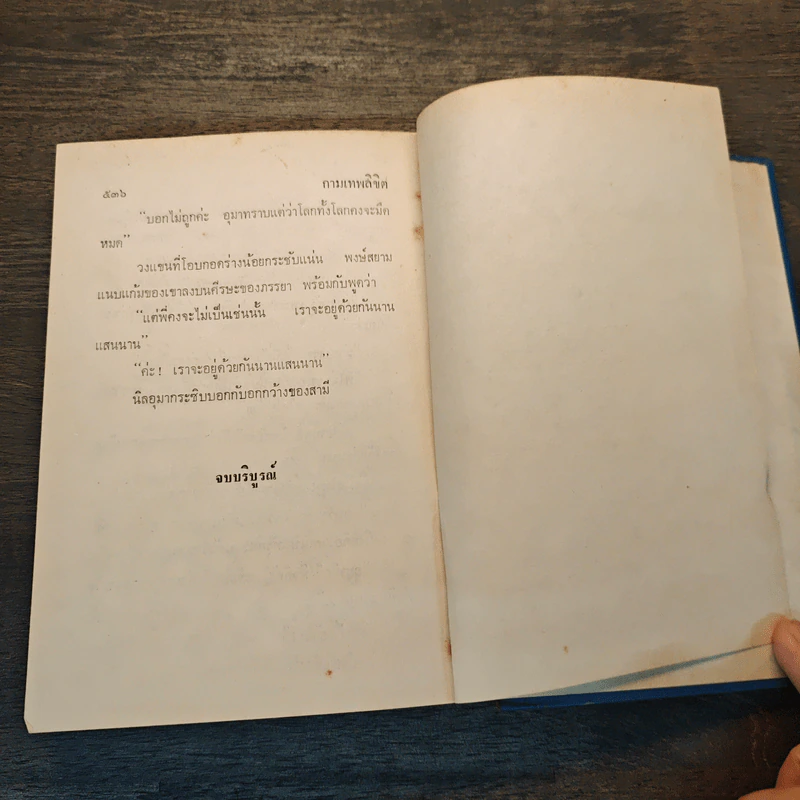 ๕๓๖ กามเทพลิขิต
"บอกไม่ถูกค่ะ อุมาทราบแต่ว่าโลกทั้งโลกคงจะมืด
หมด"
วงแขนที่โอบกอดร่างน้อยกระชับแน่น พงษ์สยาม
แนบแก้มของเขาลงบนศีรษะของภรรยา พร้อมกับพูดว่า
"แต่พี่คงจะไม่เป็นเช่นนั้น เราจะอยู่ด้วยกันนาน
แสนนาน"
"ค่ะ! เราจะอยู่ด้วยกันนานแสนนาน"
นิลอุมากระซิบบอกกับอกกว้างของสามี
จบบริบูรณ์